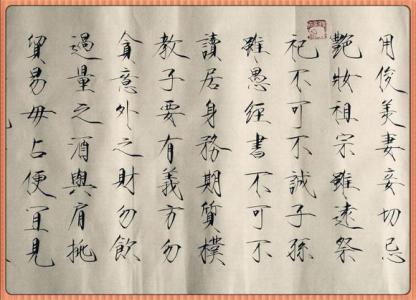 用俊美妻妾切忌
艷妝祖宗雖遠祭
祀不可不誠子孫
雖愚經書不可不
讀居身務期質樸
教子要有義方勿
貪意外之財勿飲
過量之酒與肩挑
貿易毋占便宜見